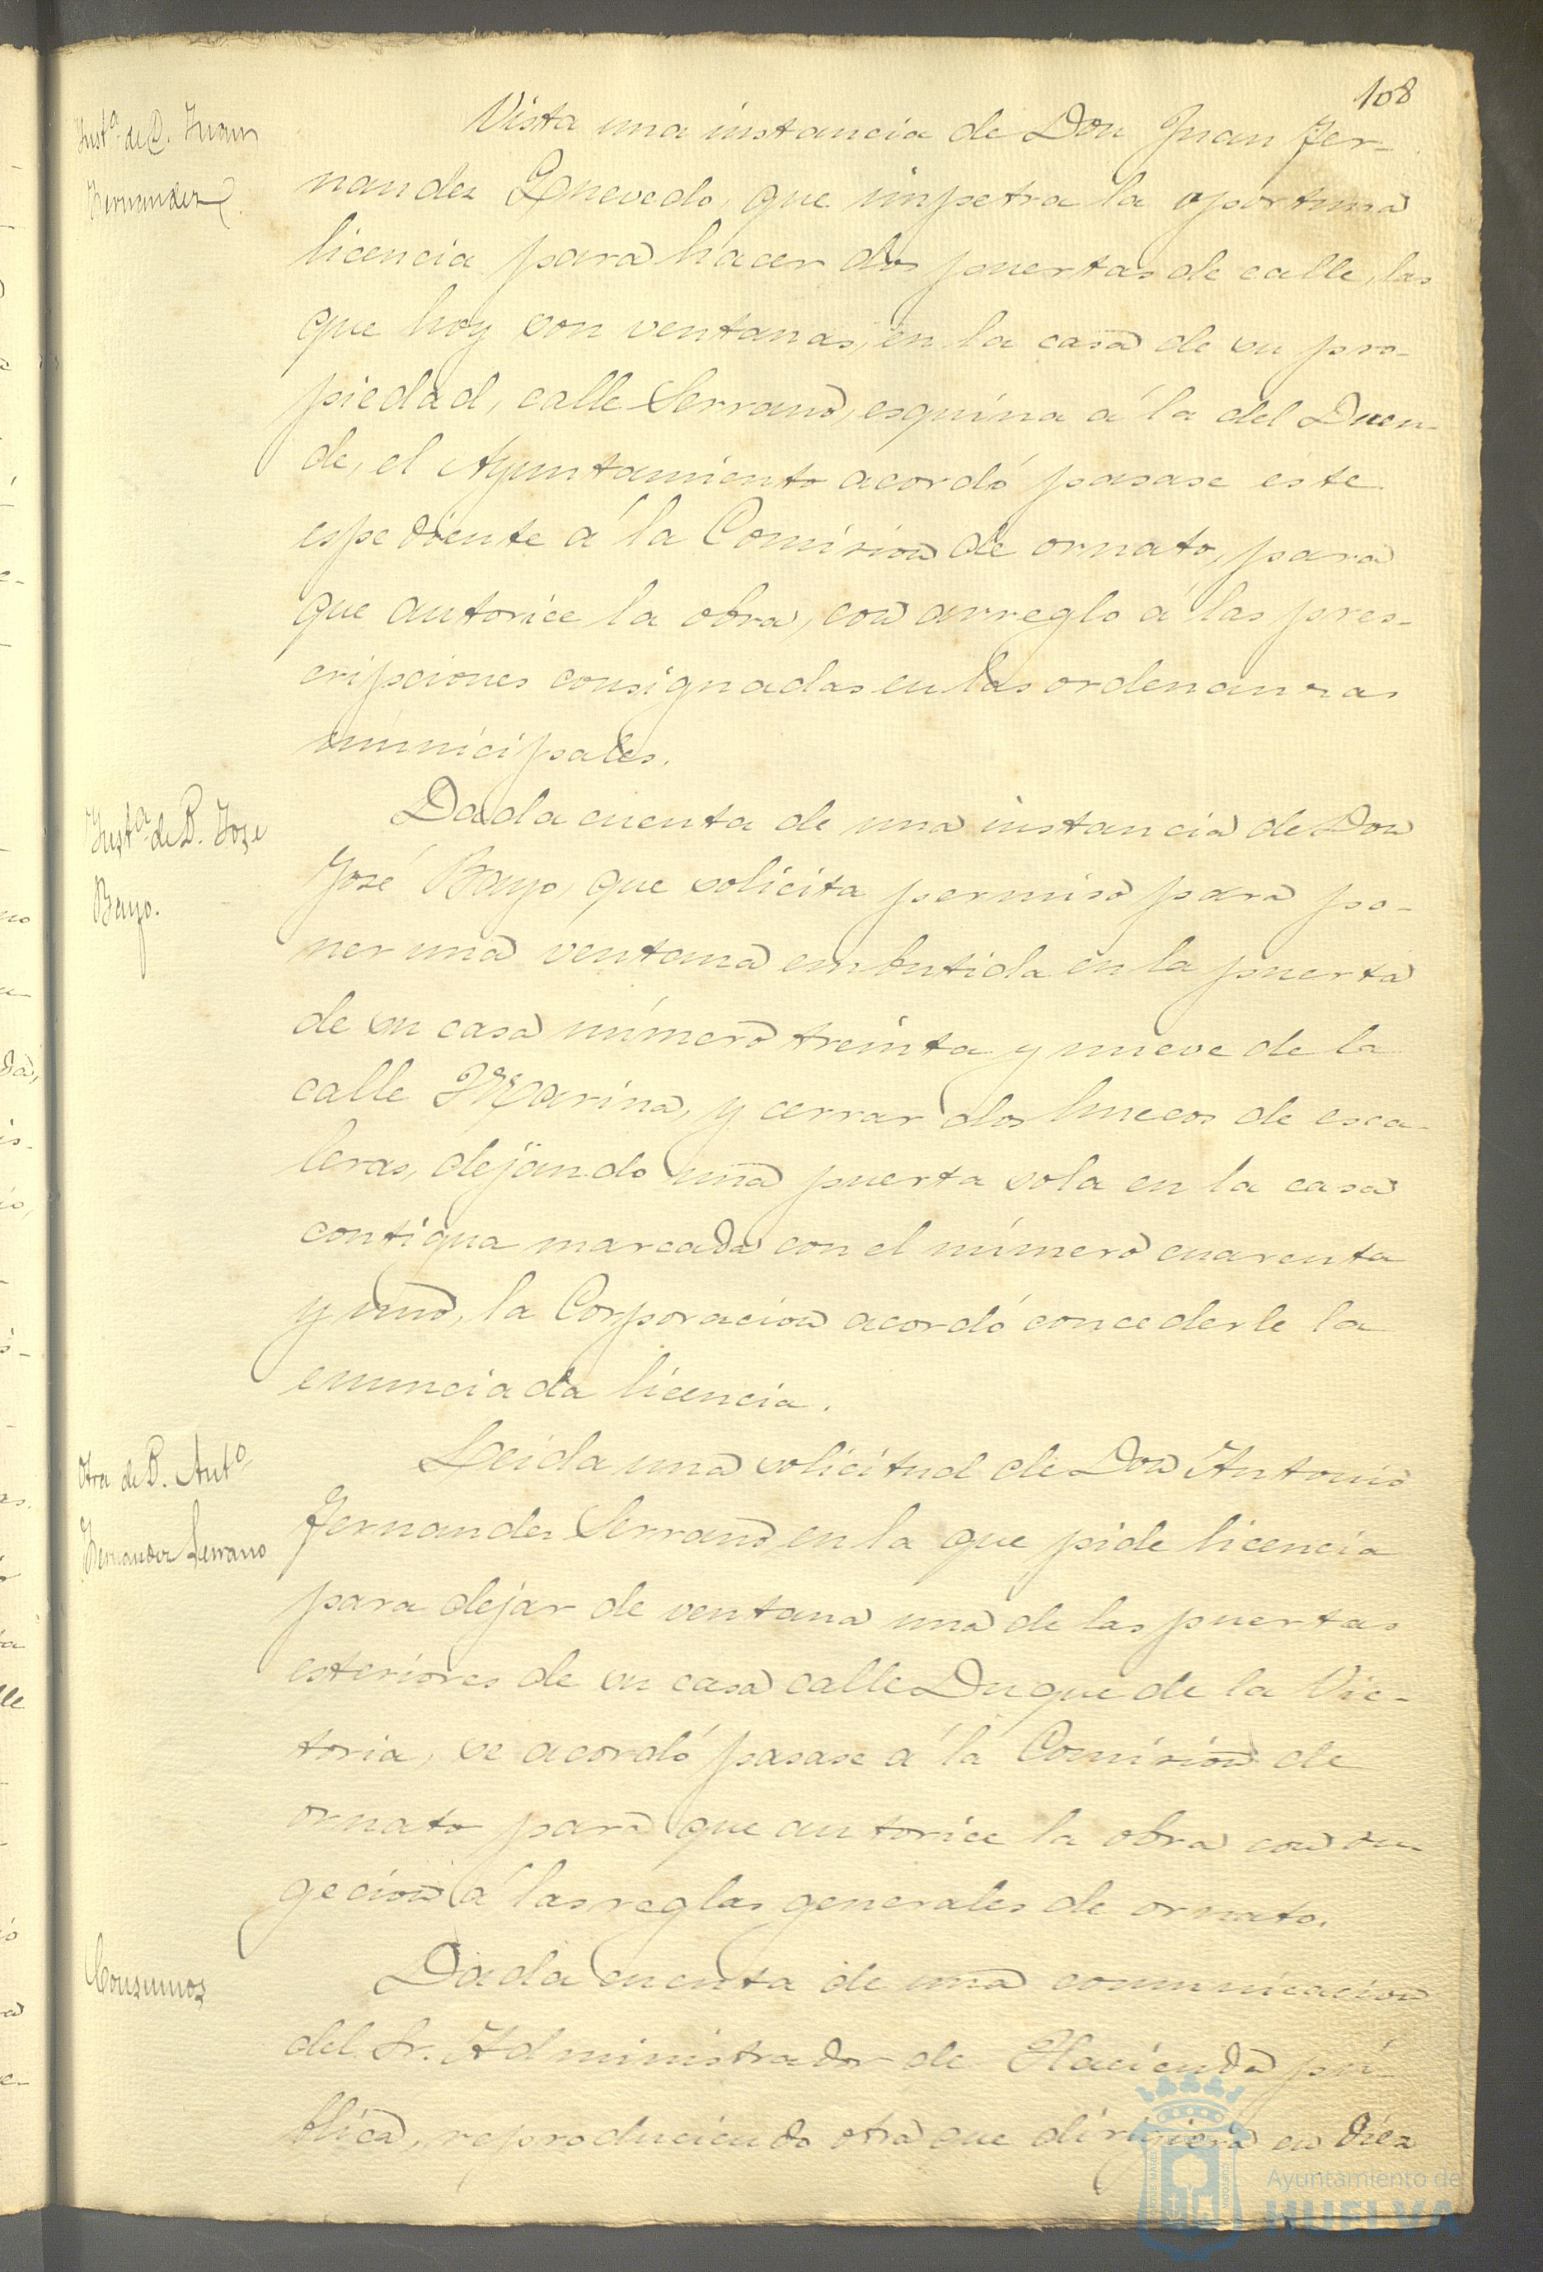 108
Inst.ª de D. Juan
Fernandez
Vista una instancia de Don Juan Fer-
nandez Quevedo, que impetra la oportuna
licencia para hacer dos puertas de calle, las
que hoy son ventanas, en la casa de su pro-
piedad, calle Serrano, esquina á la del Duen-
de, el Ayuntamiento acordó pasase este
espediente á la Comision de ornato, para
que autorice la obra, con arreglo á las pres-
cripciones consignadas en las ordenanzas
municipales.
Inst.ª de D. José
Bayo.
Dada cuenta de una instancia de Don
José Bayo, que solicita permiso para po-
ner una ventana embutida en la puerta
de su casa número treinta y nueve de la
calle Marina, y cerrar dos huecos de esca-
leras, dejando una puerta sola en la casa
contigua marcada con el número cuarenta
y uno, la Corporacion acordó concederle la
enunciada licencia.
Otra de D. Ant.º
Fernandez Serrano
Leida una solicitud de Don Antonio
Fernandez Serrano, en la que pide licencia
para dejar de ventana una de las puertas
esteriores de su casa calle Duque de la Vic-
toria, se acordó pasase á la Comision de
ornato para que autorice la obra con su-
gecion á las reglas generales de ornato.
Consumos
Dada cuenta de una comunicacion
del Sr. Administrador de Hacienda pú-
blica, reproduciendo otra que dirigiera en diez
Ayuntamiento de
HUELVA